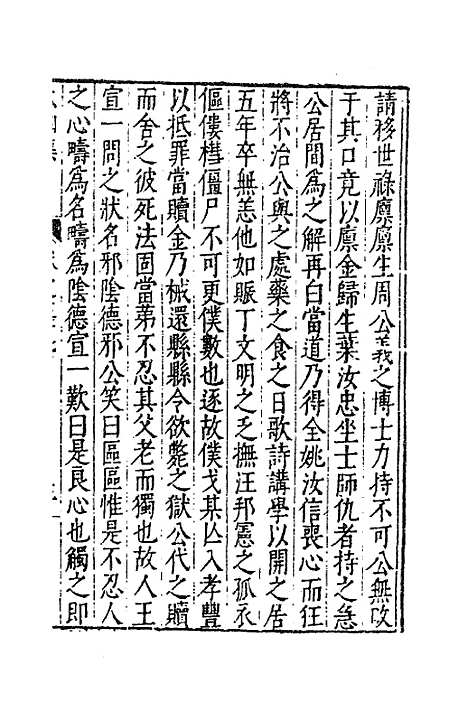 請移世祿廪廪生周公義之博士力持不可公無改
于其口竟以廪金歸生葉汝忠坐士師仇者持之急
公居間爲之解再白當道乃得全姚汝信喪心而狂
將不治公與之處藥之食之日歌詩講學以開之居
五年卒無恙他如賑丁文明之乏撫汪邦憲之孤衣
傴僂槥僵尸不可更僕數也逐故僕戈其亾入孝豐
以抵罪當贖金乃械還縣縣令欲斃之獄公代之贖
而舍之彼死法固當苐不忍其父老而獨也故人王
宣一問之狀名邪陰德邪公笑曰區區惟是不忍人
之心疇爲名疇爲陰德宣一歎曰是良心也觸之即